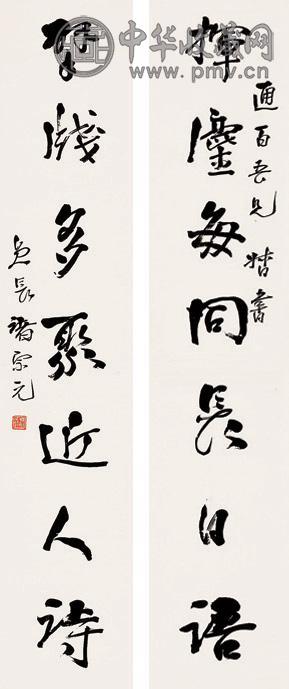 中华收藏网
www.pmv.cn
揮麈每同長日語
通百吾兄 書
牋多聚近人詩
貞長諸宗元